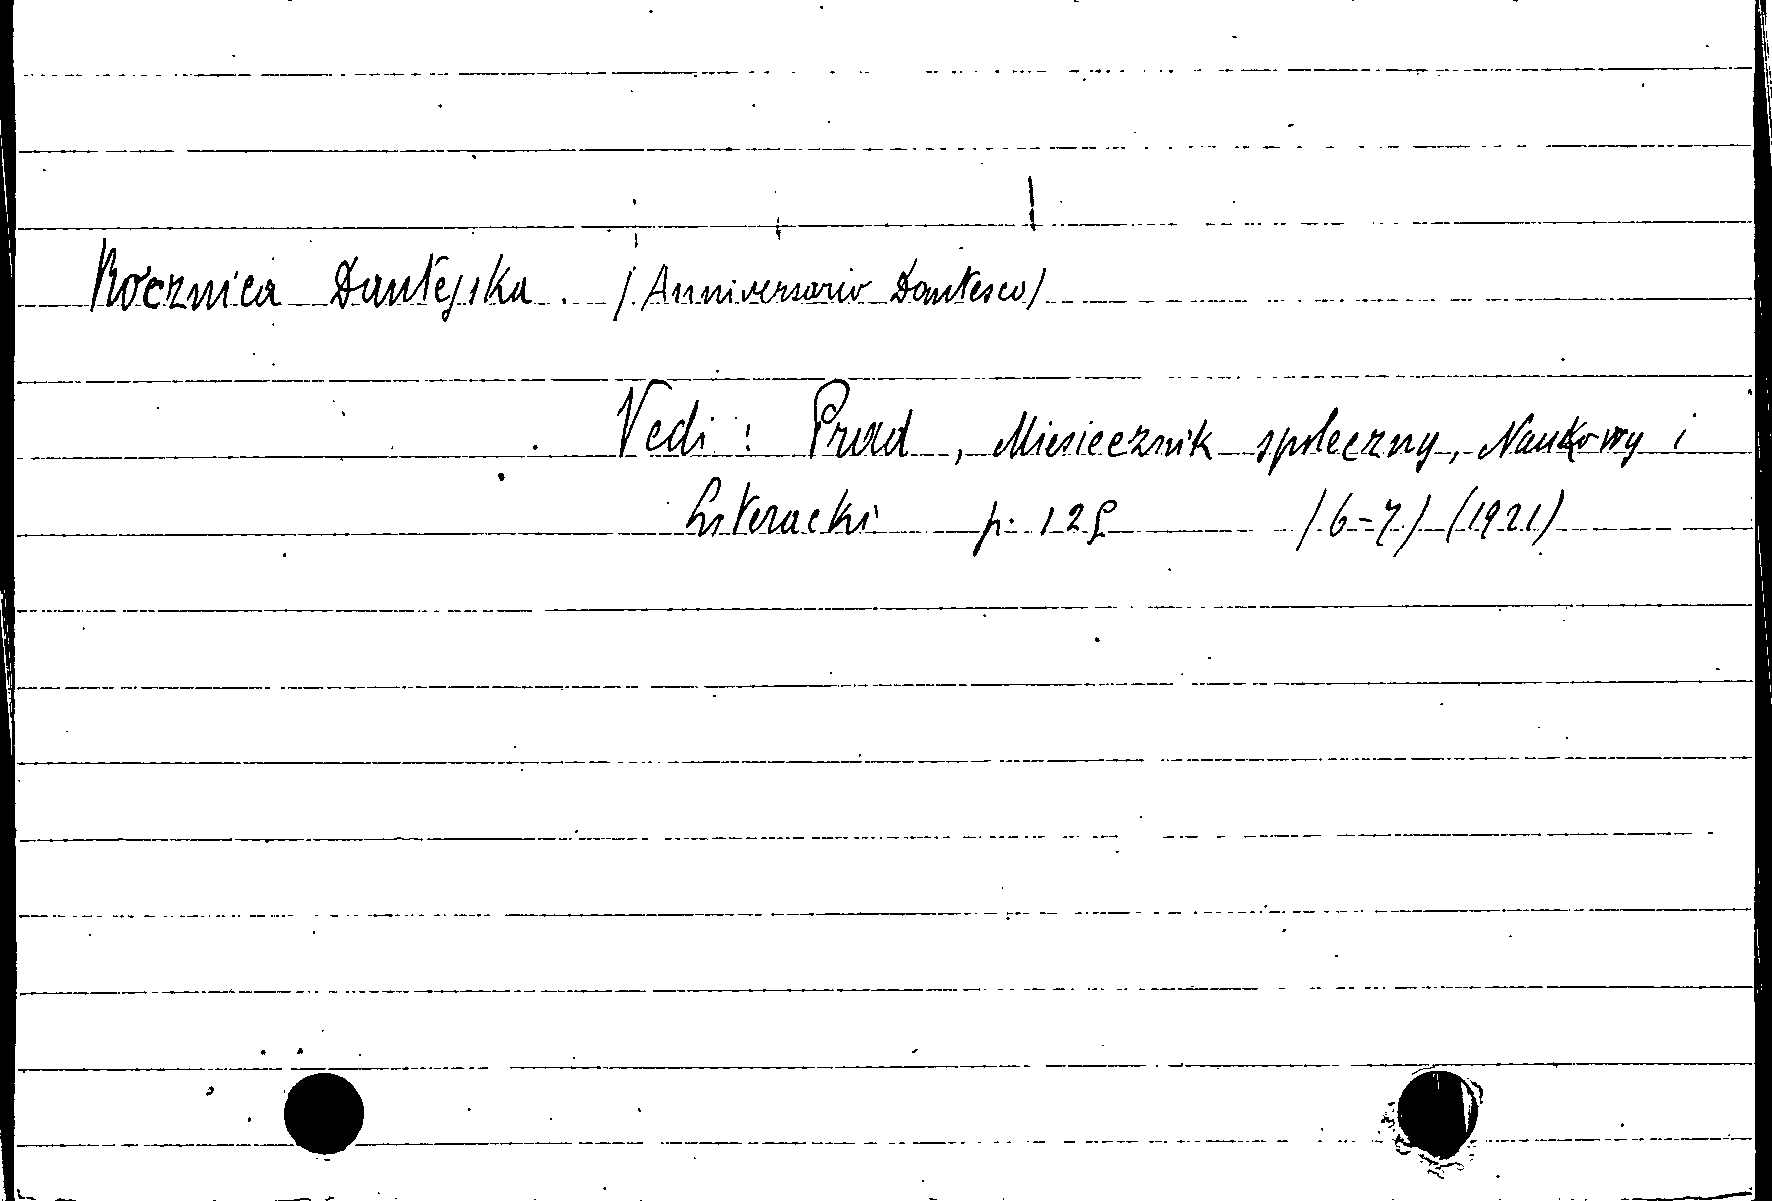 Rocznica Dantejska. /Anniversario Dantesco/
Vedi: Prąd, Miesiecznik społeczny, Naukowy i
Literacki p. 129 /6-7/ (1921)